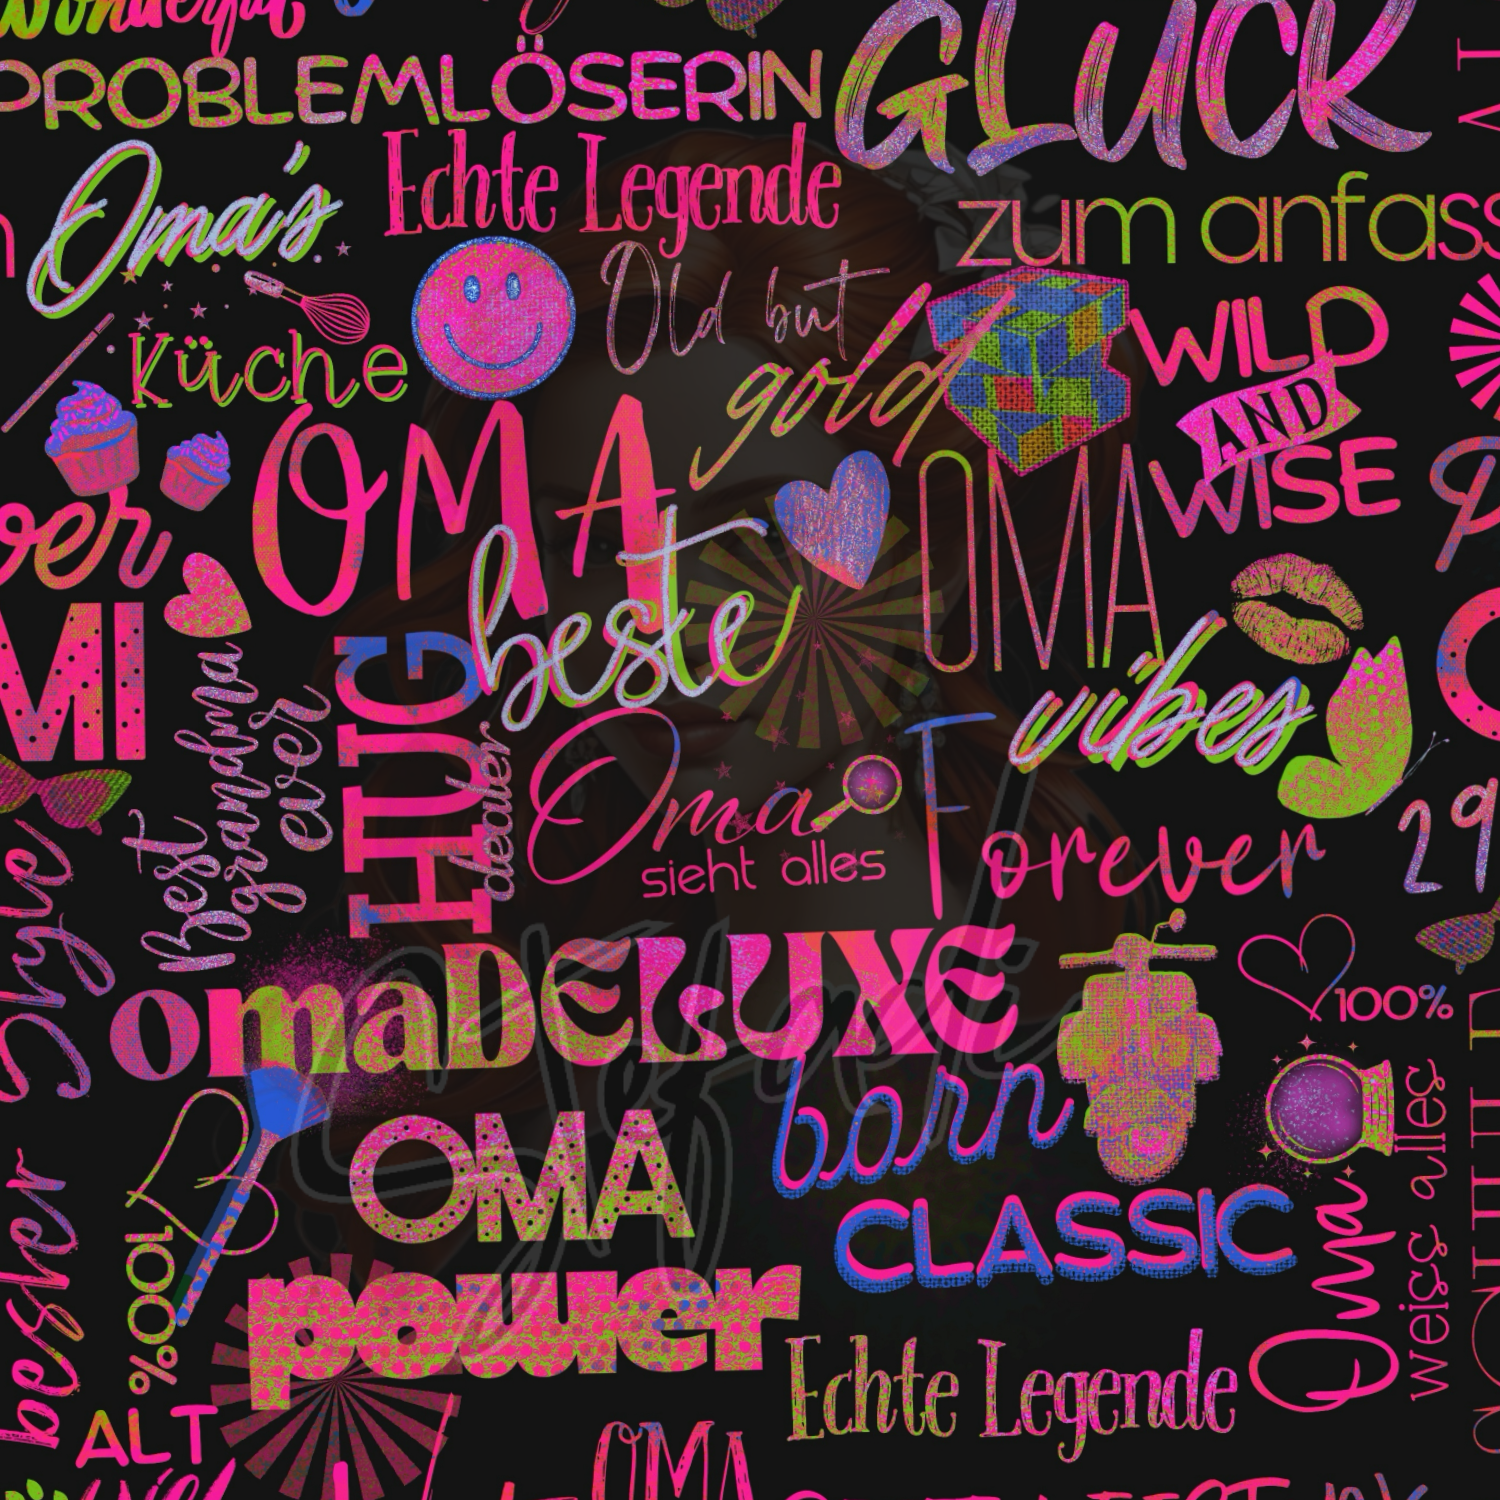 Wonderful
PROBLEMLÖSERIN
GLÜCK
zum anfass
Echte Legende
Oma's
Küche
Old but
gold
WILD
AND
WISE
OMA
beste
OMA
vibes
ver
MI
Best
grandma
ever
HUG
dealer
Oma
sieht alles
Forever
29
Style
omaDELUXE
100%
born
CLASSIC
OMA
power
100%
Oma
weiss alles
bester
Echte Legende
ALT
OMA